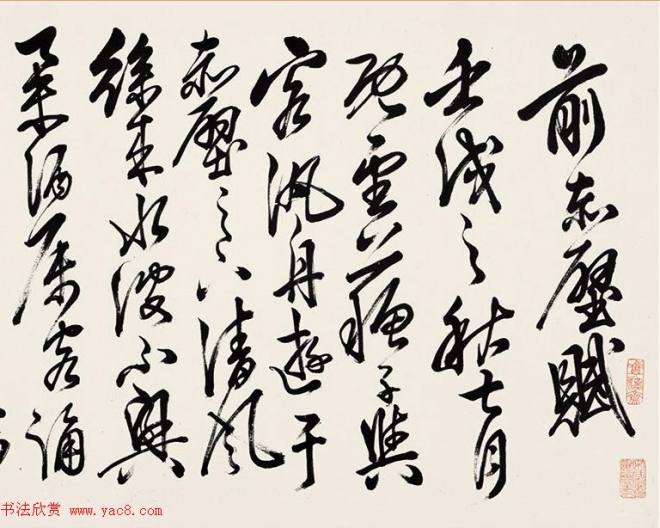 前赤壁賦
壬戌之秋七月
既望蘇子與
客泛舟遊于
赤壁之下清風
徐来水波不興
舉酒屬客誦
书法欣赏 www.yac8.com